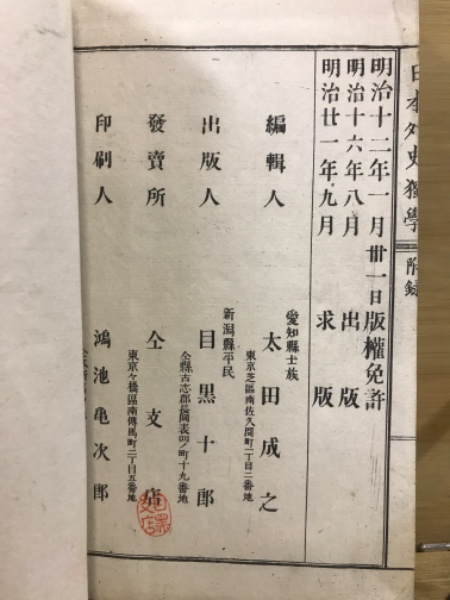 日本外史獨學 附錄
明治十二年一月卅一日版權免許
明治十六年八月 出版
明治廿一年九月 求版
編輯人
愛知縣士族
太田成之
東京芝區南佐久間町二丁目二番地
出版人
新潟縣平民
目黒十郎
仝縣古志郡長岡表四ノ町十九番地
發賣所
仝支店
東京々橋區南傳馬町二丁目五番地
印刷人
鴻池亀次郎